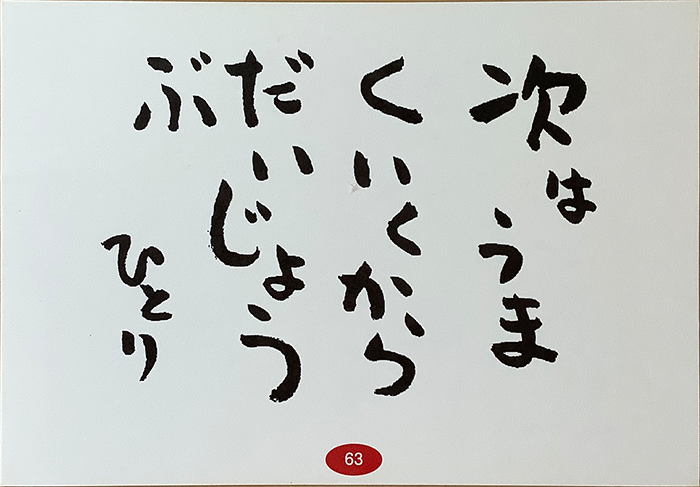 次はうま
くいくから
だいじょう
ぶ
ひとり
63